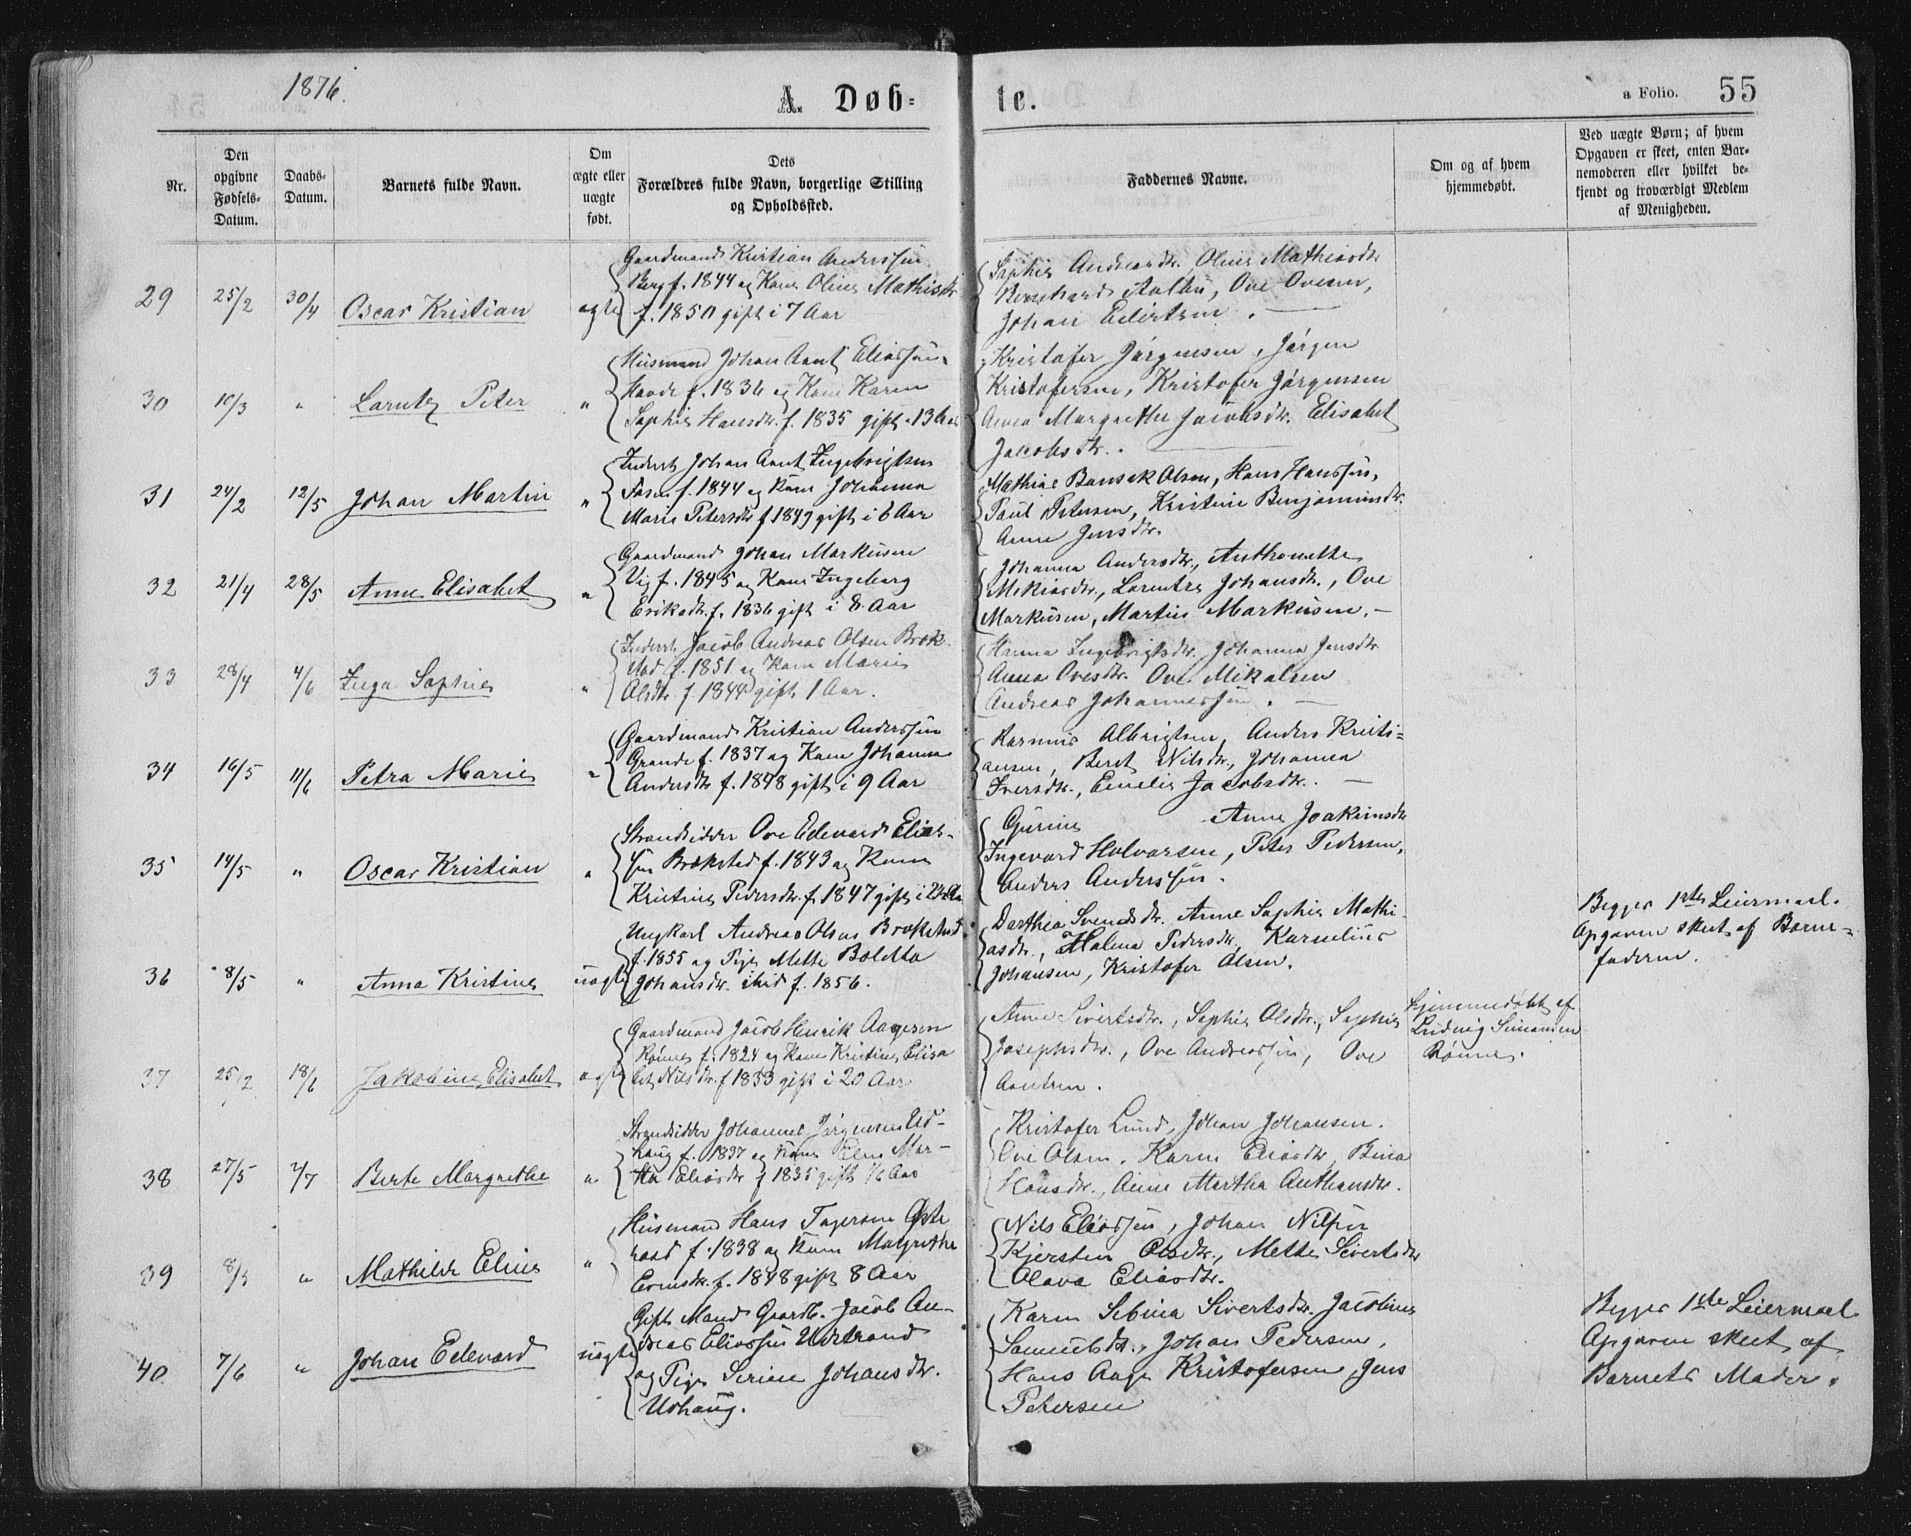 1876.
A. Døb-
te.
a Folio. 55
Nr.
Den opgivne Fødsels-Datum.
Daabs-Datum.
Barnets fulde Navn.
Om ægte eller uægte født.
Dets Forældres fulde Navn, borgerlige Stilling og Opholdssted.
Faddernes Navne.
Om og af hvem hjemmedøbt.
Ved uægte Børn; af hvem Opgaven er skeet, enten Barnemoderen eller hvilket bekjendt og troværdigt Medlem af Menigheden.
29 25/2 30/4 Oscar Kristian ægte
Gaardmand Kristian Anderssøn
Berg f. 1844 og Kone Oline Mathisdtr
f. 1850 gift i 7 Aar
Sophie Andreasdtr. Oline Mathiasdtr
Bernhard Aalbu, Ove Ovesen,
Johan Edertsen.
30 10/3 " Lorntz Peter "
Husmand Johan Arnt Eliassøn
f. 1836 og Kone Karen
Sophie Hansdtr. f. 1835 gift i 13 Aar
Kristofer Jørgensen, Jørgen
Kristofersen, Kristofer Jørgensen
Anna Margrethe Jacobsdtr. Elisabet
Jacobsdtr.
31 24/2 12/5 Johan Martin "
Inderst Johan Arnt Ingebrigtsen
f. 1844 og Kone Johanna
Marie Petersdtr f 1849 gift i 6 Aar
Mathias Olsen, Hans Hanssøn,
Paul Petersen, Kristine Benjaminsdtr.
Anne Jensdtr.
32 21/4 28/5 Anne Elisabet "
Gaardmand Johan Markusen
Vig f. 1845 og Kone Ingeborg
Eriksdtr. f. 1836 gift i 8 Aar
Johanna Andersdtr., Anthonette
Mikiasdtr., Lorentze Johansdtr., Ove
Markusen, Martin Markusen.
33 28/4 4/6 Inga Sophie "
Inderst Jacob Andreas Olsen Bræk-
stad f. 1851 og Kone Marie
Olsdtr f. 1844 gift 1 Aar.
Hanna Ingebrigtsdtr. Johanna Jensdtr
Anna Ovesdtr. Ove Mikalsen
Andreas Johannessøn.
34 16/5 11/6 Petra Marie "
Gaardmand Kristian Anderssøn
Grande f. 1837 og Kone Johanna
Andersdtr f. 1848 gift i 9 Aar
Rasmus Albrigtsen, Anders Kristi-
ansen, Beret Nilsdtr., Johanna
Iversdtr., Emelie Jacobsdtr.
35 14/5 " Oscar Kristian "
Strandsidder Ove Edevard Elias-
søn Brækstad f. 1843 og Kone
Kristine Pedersdtr. f. 1847 gift i
Gurine Anne Joakimsdtr
Ingevard Halvorsen, Peter Pedersen,
Anders Anderssøn.
36 8/5 " Anna Kristine uægte
Ungkarl Andreas Olsen Brækstad
f. 1855 og Pige Mette Boletta
Johansdtr. ibid f. 1856.
Dorthea Svendsdtr. Anne Sophie Mathi-
asdtr., Halena Pedersdtr, Kornelius
Johansen, Kristofer Olsen.
Begges 1ste Leiermaal.
Opgaven skeet af Barne-
faderen.
37 25/2 18/6 Jakobine Elisabet ægte
Gaardmand Jacob Henrik Aagesen
Rønne f. 1824 og Kone Kristine Elisa
bet Nilsdtr. f 1833 gift i 20 Aar
Anne Sivertsdtr., Sophie Olsdtr., Sophie
Josephsdtr., Ove Andreassøn, Ove
Arntsen.
Hjemmedøbt af
Ludvig Simonsen
Rønne.
38 27/5 2/7 Berte Margrethe "
Strandsidder Johannes Jørgensen Ud-
haug f. 1837 og Kone Elen Mar-
tha Eliasdtr f 1835 gift 1/6 Aar
Kristofer Lund, Johan Johansen.
Ove Olsen. Karen Eliasdtr, Bina
Hansdtr., Anne Martha Anthonsdtr.
39 8/5 " Mathilde Eline "
Husmand Hans Tagesen Øste
raad f. 1838 og Kone Margrethe
f. 1848 gift 8 Aar
Nils Eliassøn, Johan Nilsen
Kjersten Olsdtr., Mette Sivertsdtr
Olava Eliasdtr.
40 7/6 " Johan Edevard uægte
Gift Mand Gaardb. Jacob An-
dreas Eliassøn Udstrand
og Pige Serine Johansdtr.
Udhaug.
Karen Sebina Sivertsdtr. Jacobine
Samuelsdtr., Johan Pedersen,
Hans Aage Kristofersen, Jens
Petersen
Begges 1ste Leiermaal
Opgaven skeet af
Barnets Moder.